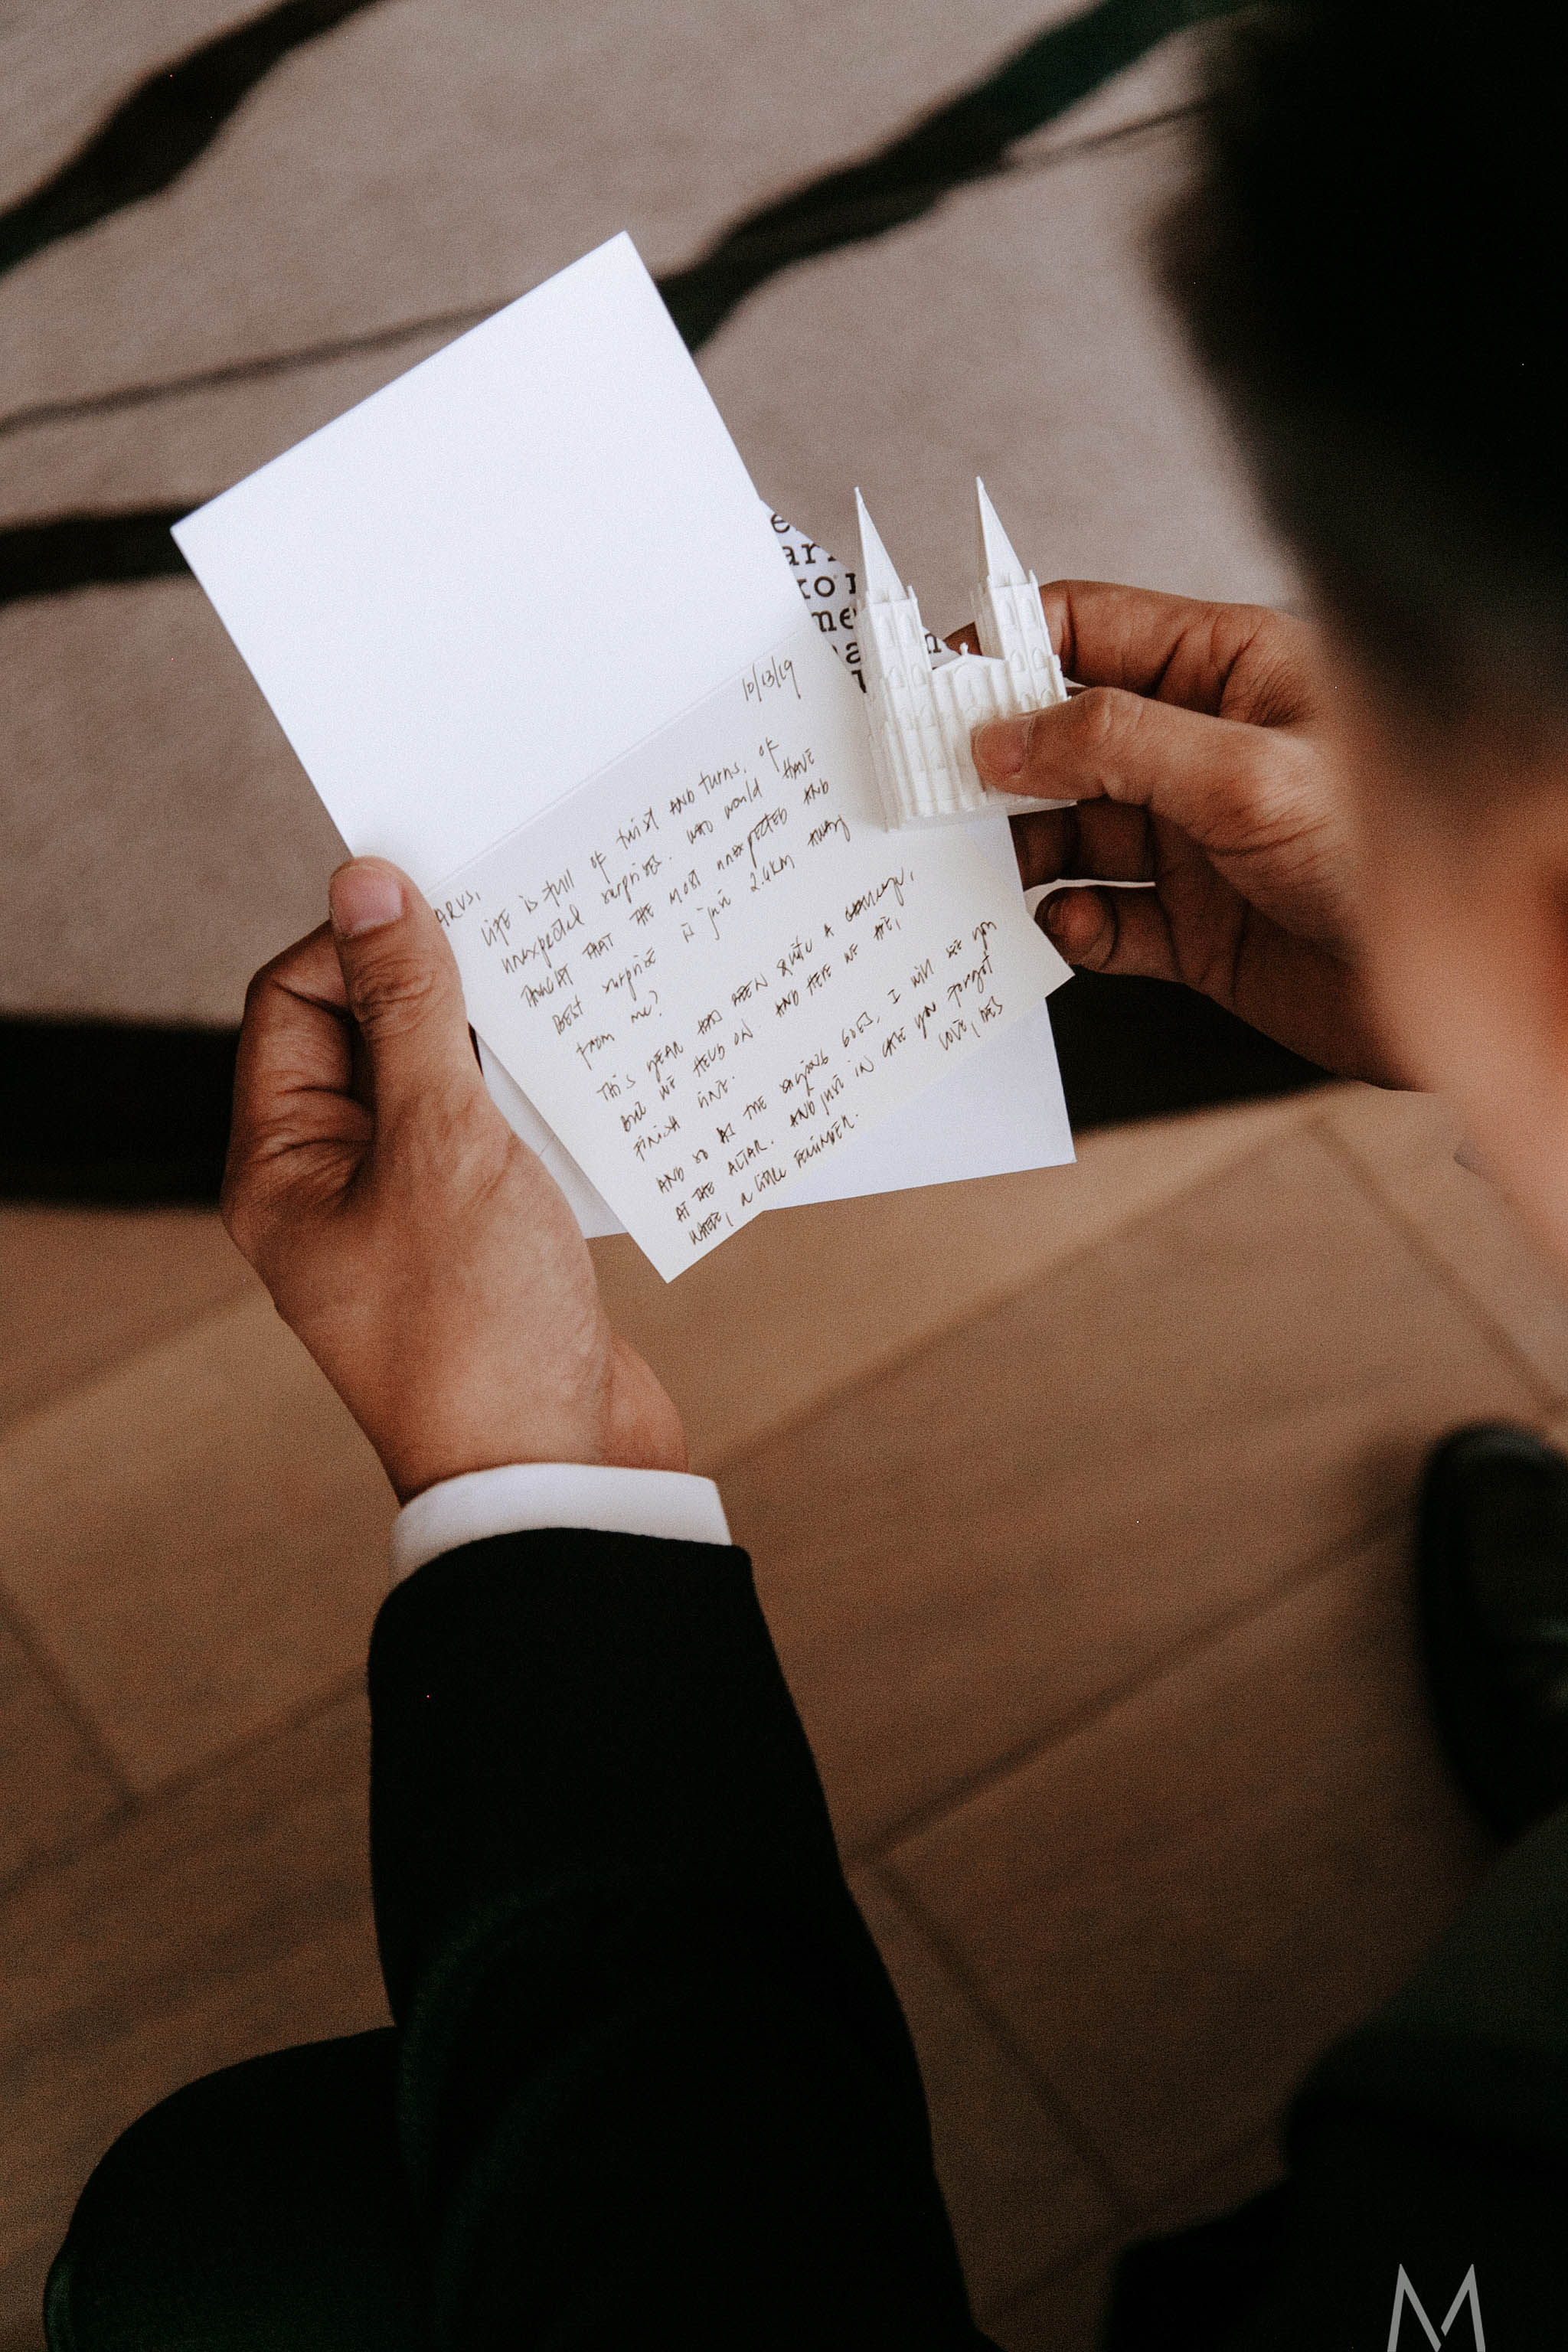 10/13/19
ARVS,
LIFE is full OF twist AND turns, OF
unexpected surprises. WHO would HAVE
THOUGHT THAT THE MOST unexpected AND
BEST surprise is just 2.4KM AWAY
from me?
THIS YEAR HAS BEEN QUITE A CHALLENGE,
BUT WE HELD ON AND HERE WE ARE,
FINISH LINE.
AND SO AS THE SAYING GOES, I will SEE you
AT THE ALTAR. AND just IN CASE you forgot
WHERE, A LITTLE REMINDER.
LOVE, DES
e
ar
to
me
a
M